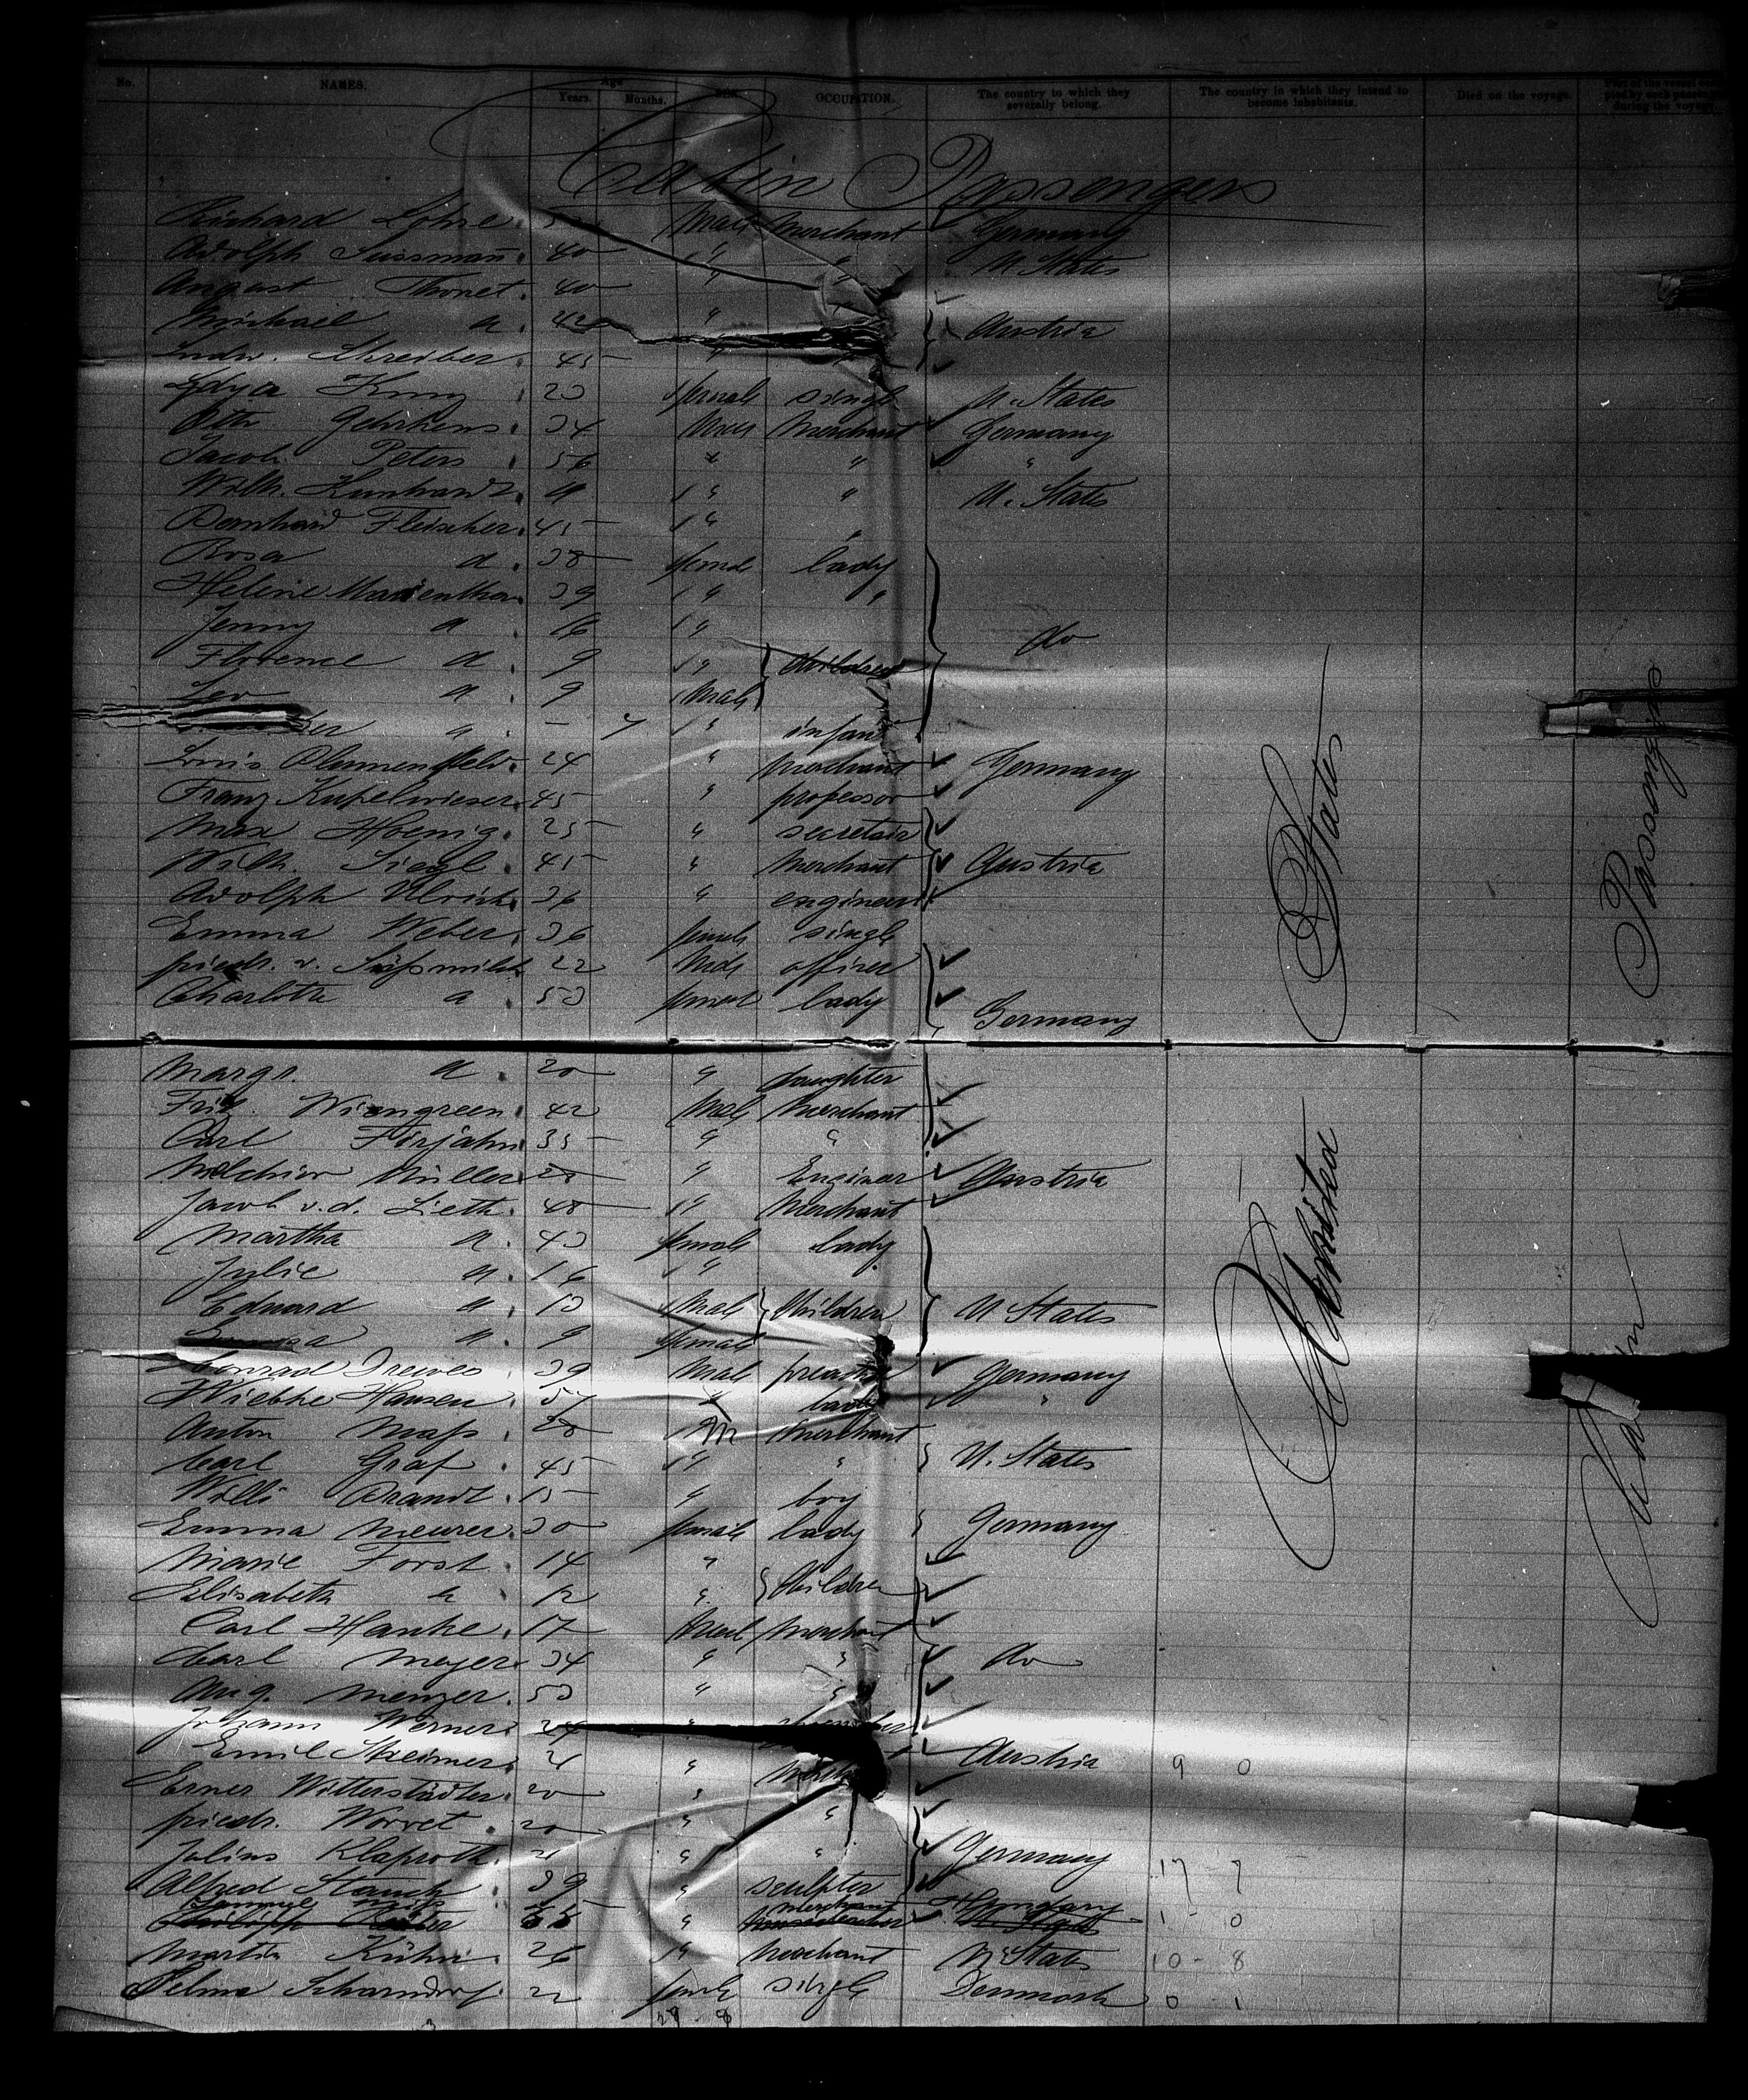 No. NAMES. Age Years. Months. SEX. OCCUPATION. The country to which they severally belong. The country in which they intend to become inhabitants. Died on the voyage. Part of the vessel occupied by each passenger during the voyage
Cabin Passengers
Richard Male Merchant Germany
Adolph 40 " " U States
August Thonet. 40 "
Michael a. 42 " Austria
Ludw. Schreiber. 45 "
Lydya 23 female single U. States
Otto Gehrkens. 34 Male Merchant Germany
Jacob Peters 56 " " "
Wilh. Kunhardt. a " " U. States
Bernhard Fleischer. 45 " "
Rosa a. 38 female lady
Helene 39 " "
Jenny a. 16 " do
Florence a. 9 " children
Leo a. 9 Male
a. - 7 " infant
Louis Blumenfeld. 24 " merchant Germany
Franz Kupelwieser. 45 " professor
Max Hoenig. 25 " secretair
Wilh. Siegl. 45 " Merchant Austria
Adolph Ulrich. 36 " engineer
Emma Weber. 36 female single
friedr. v. Süfsmilch 22 Male officer
Charlotte a. 53 female lady Germany
Margr. a. 20 " daughter
Fritz. Wiengreen. 42 Male Merchant
Carl Forjahn 35 " "
Melchior Müller. " Engineer Austria
Jacob v.d. Lieth. 48 " Merchant
Martha a. 43 female lady
Julie a. 16 "
Eduard a. 13 Male children U States
a. 9 female
Conrad Drewes 39 Male preacher Germany
Wiebke Hansen. 57 " lady "
Anton Mafs. 28 M Merchant
Carl Graf. 45 " " U. States
Willi Brandt. 15 " boy
Emma Meurer. 30 female lady Germany
Marie Forst. 14 "
Elisabeth a. 12 " children
Carl Hanke. 17 Male Merchant
Carl Meyer. 34 " " do
Aug. Menzer. 53 " "
Johann Werner. 24 "
Emil " Austria 9 0
Erner Witterstädter. 20 "
friedr. Worret. 20 " "
Julius Klaproth. 21 " " Germany 17 7
Alfred Stauch. 39 " sculpter
merchant Hungary 1 - 0
Martin Kühn. 26 " Merchant U States 10 - 8
Selma Scharndorf. 22 female single Denmark 0 1
28 - 8
United States
Cabin Passengers